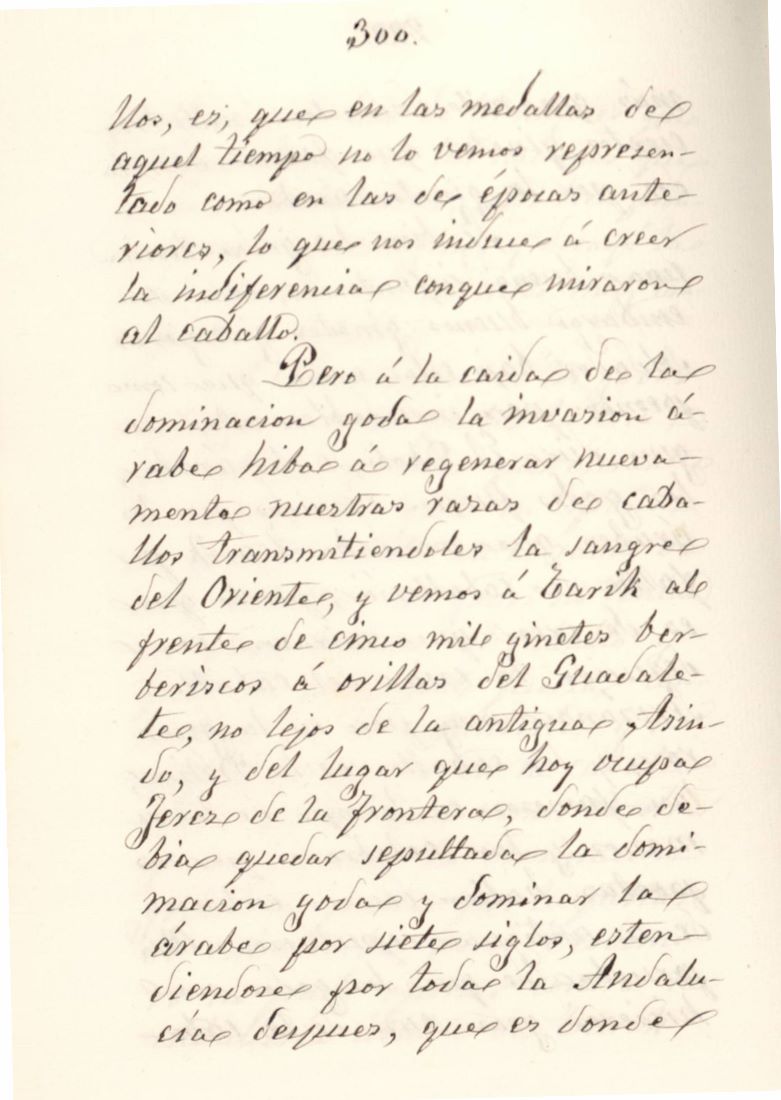 300.
llos, es, que en las medallas de
aquel tiempo no lo vemos represen-
tado como en las de épocas ante-
riores, lo que nos induce á creer
la indiferencia conque miraron
al caballo.
Pero á la caida de la
dominacion goda la invasion á-
rabe hiba á regenerar nueva-
mente nuestras razas de caba-
llos transmitiendoles la sangre
del Oriente, y vemos á Tarik al
frente de cinco mil ginetes ber-
beriscos á orillas del Guadale-
te, no lejos de la antigua Asin-
do, y del lugar que hoy ocupa
Jerez de la frontera, donde de-
bia quedar sepultada la domi-
nacion goda y dominar la
árabe por siete siglos, esten-
diendose por toda la Andalu-
cía despues, que es donde